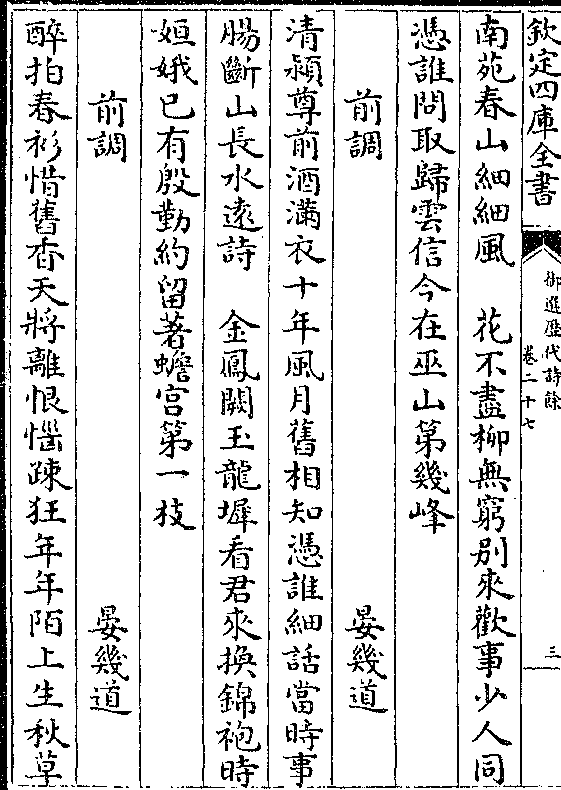 欽定四庫全書
御選歷代詩餘
卷二十七
三
南苑春山細細風　花不盡柳無窮別來歡事少人同
憑誰問取歸雲信今在巫山第幾峰
前調　晏幾道
清潁尊前酒滿衣十年風月舊相知憑誰細話當時事
腸斷山長水遠詩　金鳳闕玉龍墀看君來換錦袍時
姮娥已有殷勤約留著蟾宮第一枝
前調　晏幾道
醉拍春衫惜舊香天將離恨惱疎狂年年陌上生秋草